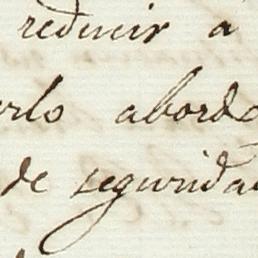 reducir a
erlo abordo
de segurida